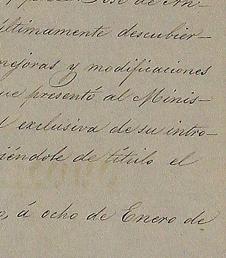 José de An-
últimamente descubier-
mejoras y modificaciones
que presentó al Minis-
exclusiva de su intro-
iéndole de título el
á ocho de Enero de